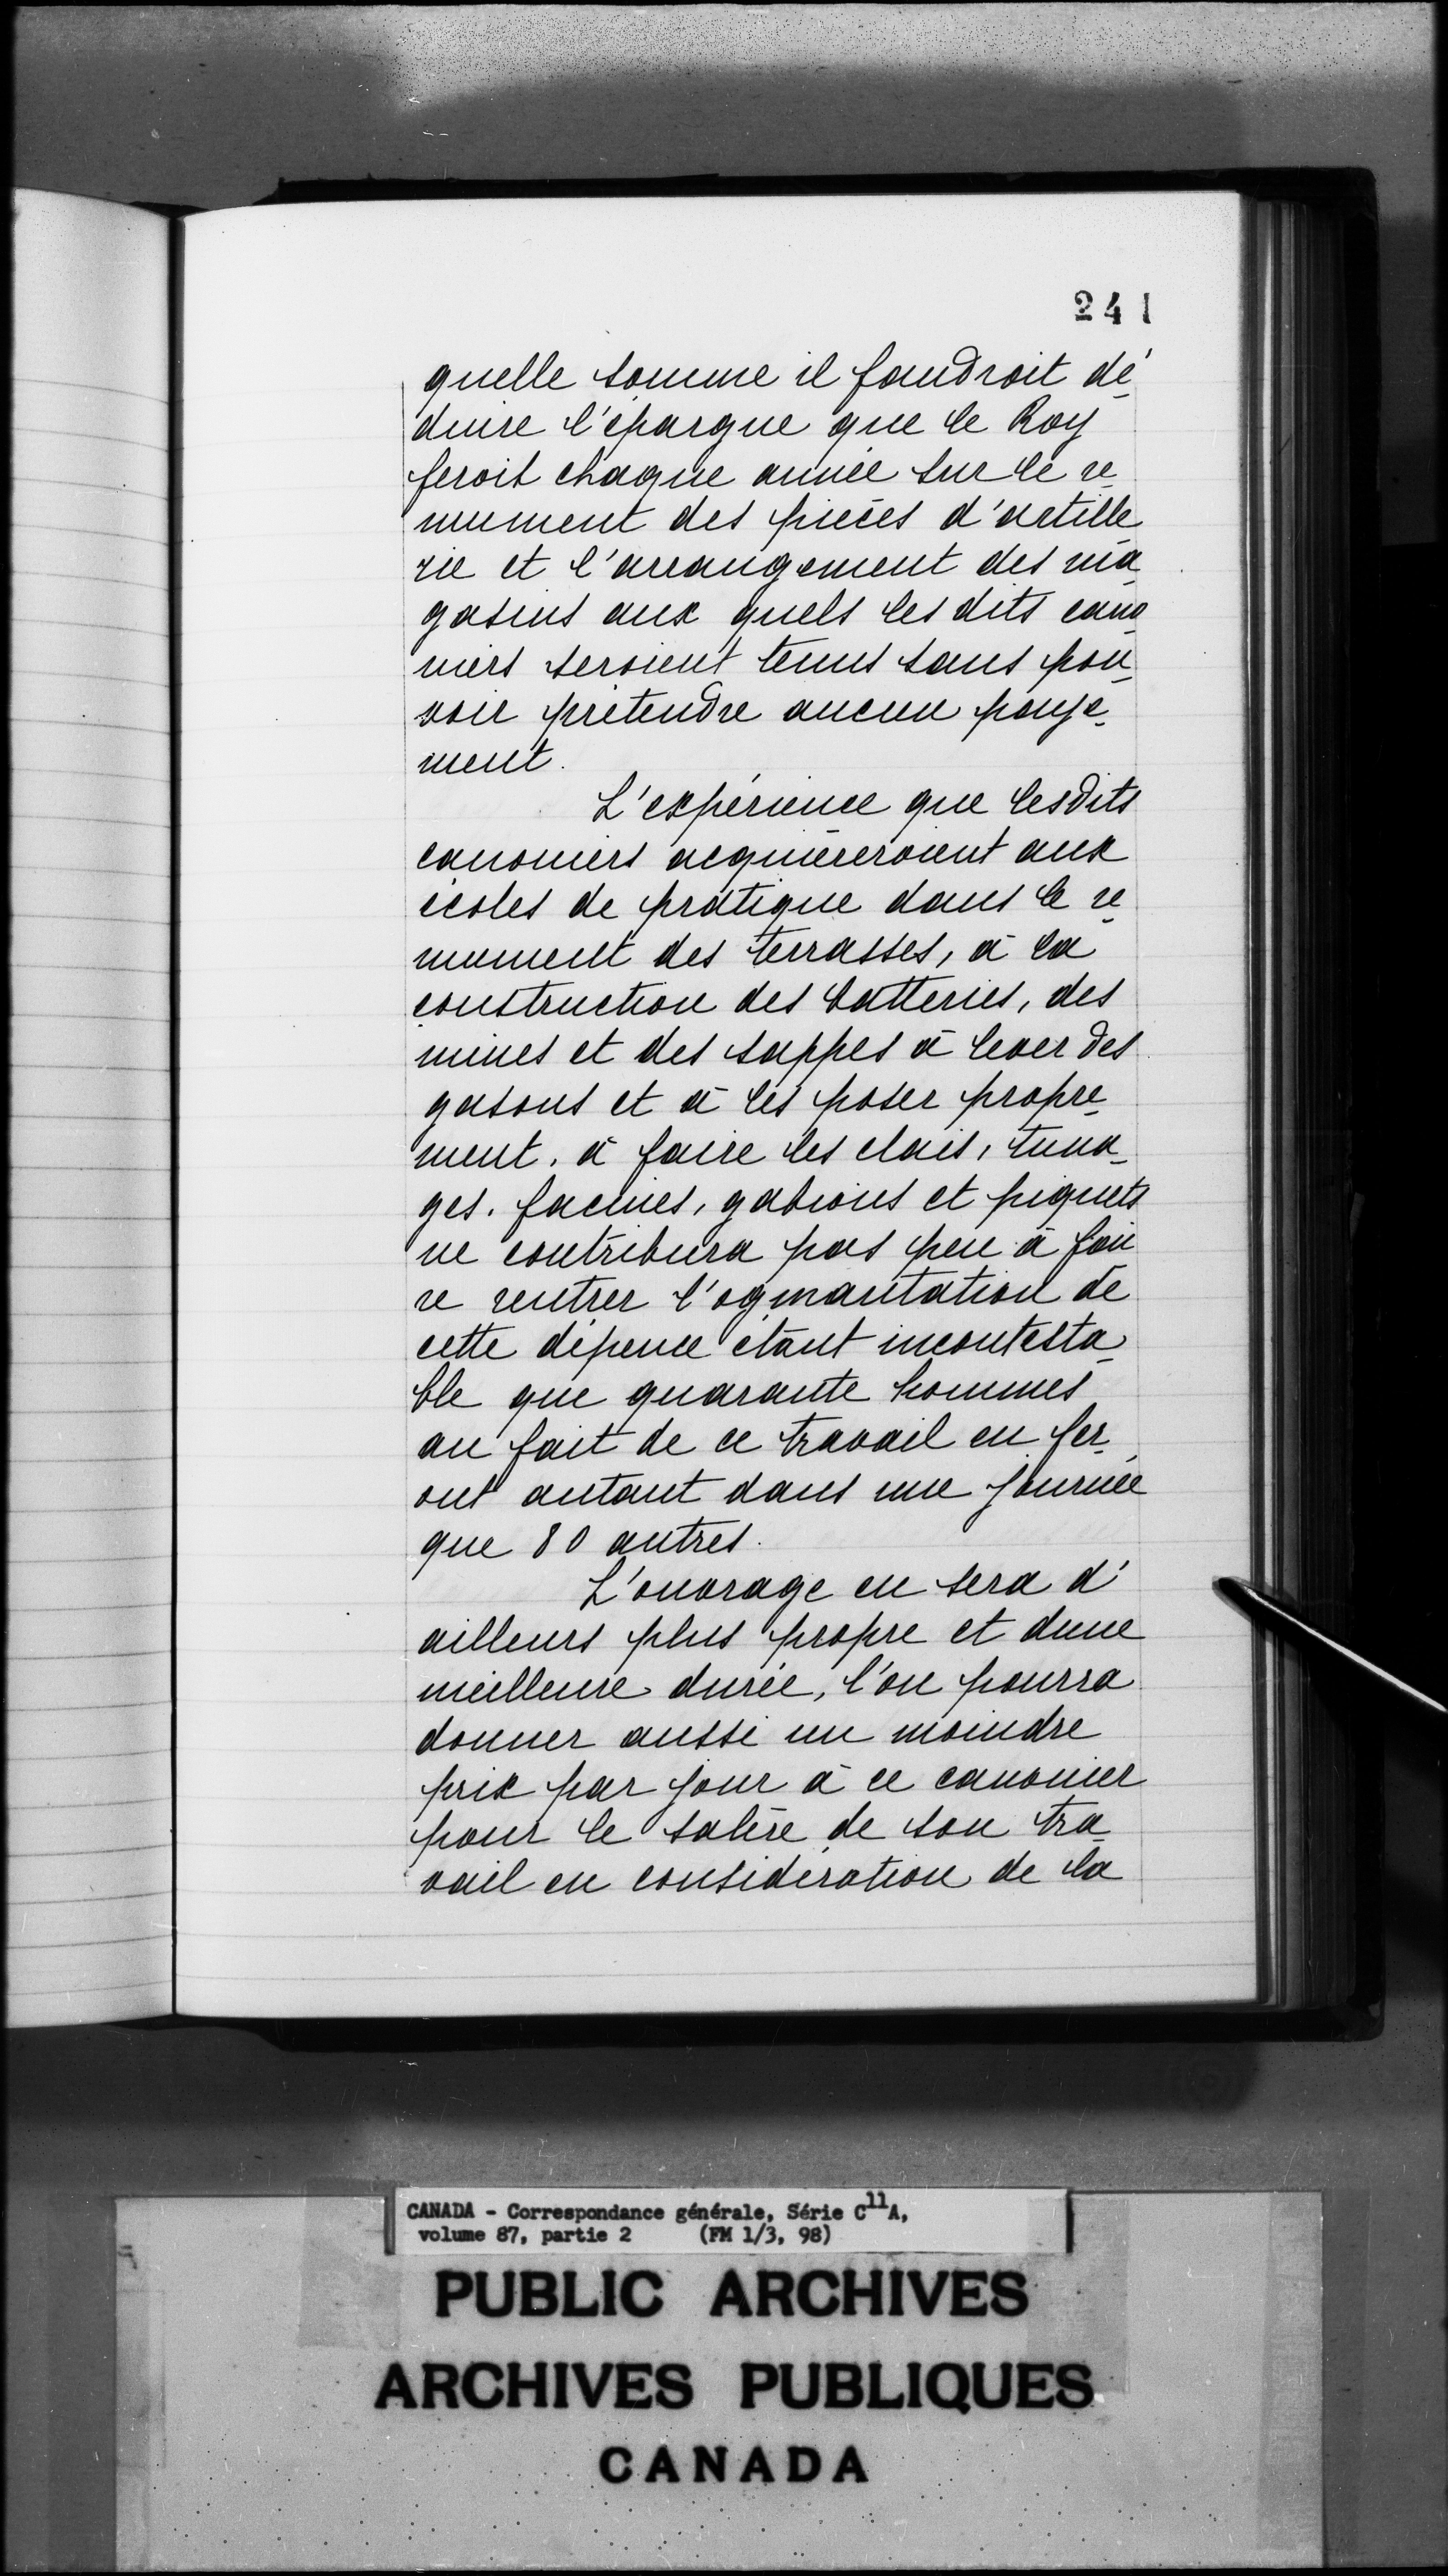 241
quelle somme il faudroit dé
duire l'épargne que le Roy
feroit chaque année sur le re
mument des pièces d'artille
rie et l'arrangement des ma
gasins aux quels les dits cano
niers seroient tenus sans pou
voir prétendre aucun paye
ment.
L'expérience que lesdits
canoniers acquiereroient aux
écoles de pratique dans le re
mument des terrasses, à la
construction des batteries, des
mines et des sappes à lever des
gasons et à les poser propre
ment, à faire les clais, tuna
ges, facines, gabions et piquets
ne contribura pas peu à fai
re rentrer l'ogmantation de
cette dépence étant incontesta
ble que quarante hommes
au fait de ce travail en fer
ont autant dans une journée
que 80 autres.
L'ouvrage en sera d'
ailleurs plus propre et dune
meilleure durée, l'on pourra
donner aussi un moindre
prix par jour à ce canonier
pour le salère de son tra
vail en considération de la
CANADA - Correspondance générale, Série C11A,
volume 87, partie 2 (FM 1/3, 98)
PUBLIC ARCHIVES
ARCHIVES PUBLIQUES
CANADA